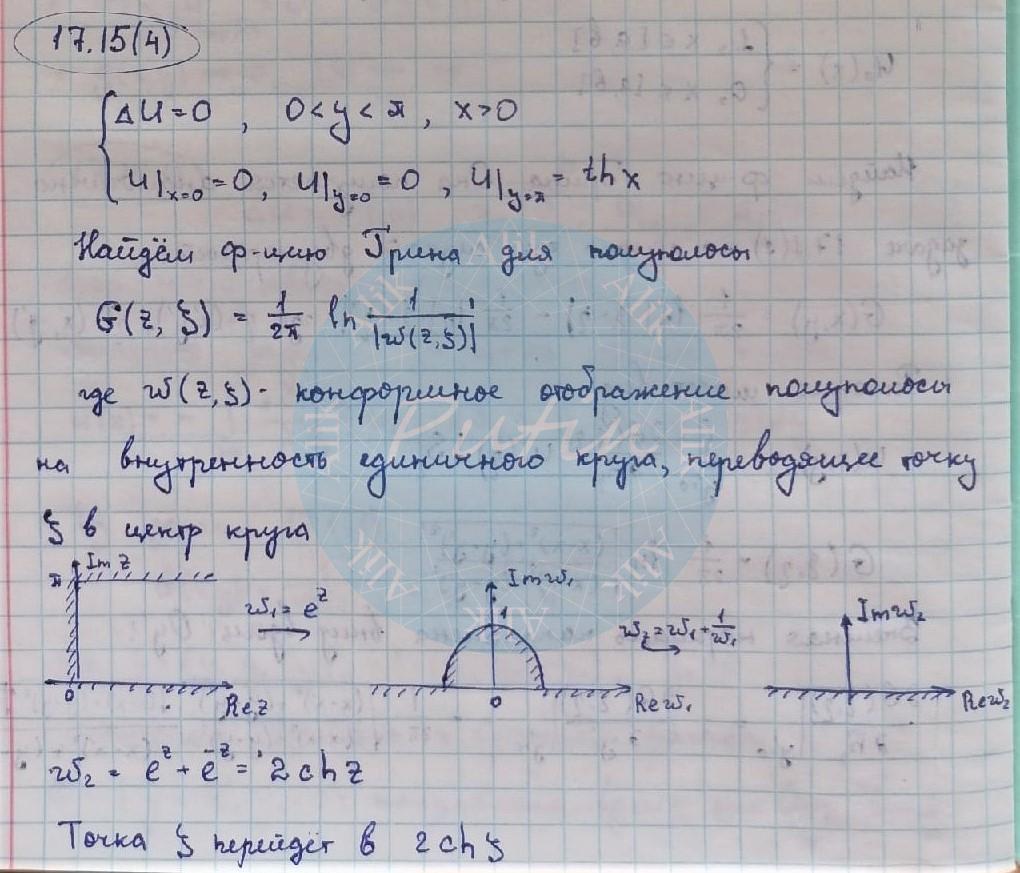 17.15(4)
ΔU=0, 0<y<π, x>0
U|x=0=0, U|y=0=0, U|y=π= th x
Найдём ф-цию Грина для полуполосы
G(z, ξ) = 1/2π ln 1/|w(z,ξ)|
где w(z,ξ)- конформное отображение полуполосы
на внутренность единичного круга, переводящее точку
ξ в центр круга
Im z
π
0
Re z
w₁= e^z
Im w₁
1
0
Re w₁
w₂=w₁+1/w₁
Im w₂
Re w₂
w₂ = e^z + e^-z = 2 ch z
Точка ξ перейдёт в 2 ch ξ
Alik
Alik
Alik
Alik
Putin
Alik
Alik
Alik
Alik